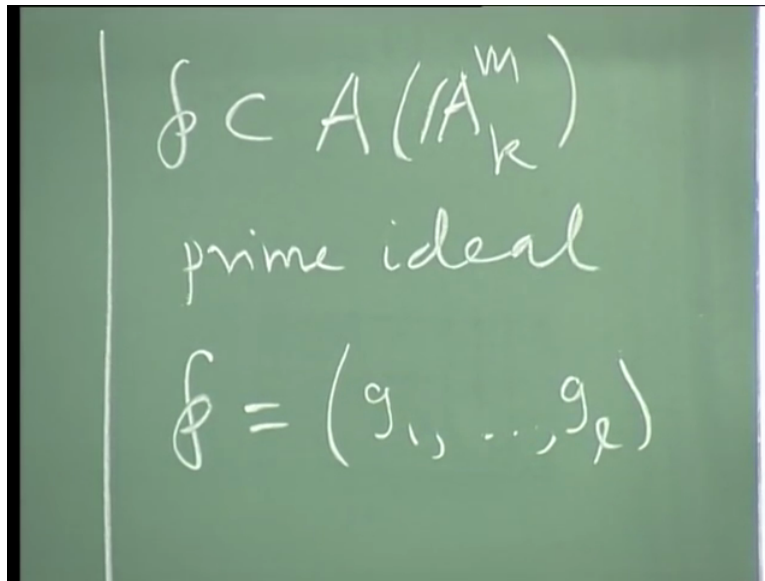 𝔭 ⊂ A(𝔸ᵐₖ)
prime ideal
𝔭 = (g₁, ..., gₗ)